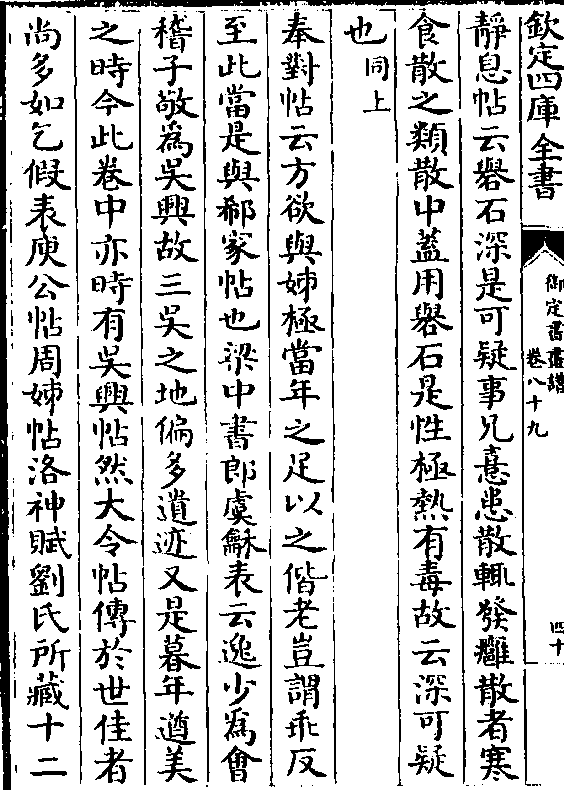 欽定四庫全書
御定書畫譜
卷八十九
四十
靜息帖云礜石深是可疑事兄憙患散輒發癰散者寒
食散之類散中蓋用礜石是性極熱有毒故云深可疑
也同上
奉對帖云方欲與姊極當年之足以之偕老豈謂乖反
至此當是與郗家帖也梁中書郎虞龢表云逸少為會
稽子敬為吳興故三吳之地偏多遺迹又是暮年遒美
之時今此卷中亦時有吳興帖然大令帖傳於世佳者
尚多如乞假表庾公帖周姊帖洛神賦劉氏所藏十二